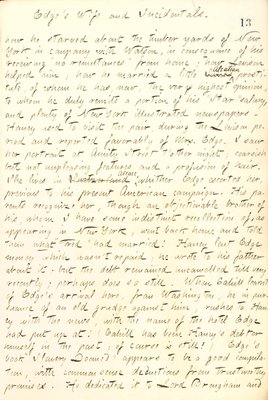 Edge's Wife and Incidentals.
13
how he starved about the timber yards of New
York in company with Watson, in consequence of his
receiving no remittances from home; how Lawson
helped him; how he married a little prosti-
tute, of whom he has, now, the very highest opinion,
to whom he duly remits a portion of his Star salary
and plenty of New York illustrated newspapers.
Haney used to visit the pair during the Unison pe-
riod and reported favorably of Mrs. Edge. I saw
her portrait at Smith's Street t'other night; coarseish
but not unpleasing features and a profusion of hair.
She lives in whither Edge escorted her,
previous to his present American campaign. His pa-
rents recognize her, though an objectionable brother of
his whom I have some indistinct recollection of, as
appearing in New York, went back home and told
them what Fred had married! Haney lent Edge
money which wasn't repaid, he wrote to his father
about it; but the debt remained uncancelled till very
recently; perhaps does so still. When Cahill learnt
of Edge's arrival here, from Washington, he in pur-
suance of an old grudge against him, rushes to Ha-
ney with the news, with the name of the hotel Edge
had put up at! (Cahill has been Haney's debtor
himself in the past; of course is still!) Edge's
book "Slavery Doomed" appears to be a good compila-
tion, with common-sense deductions from trustworthy
premises. He dedicated it to Lord Brougham and